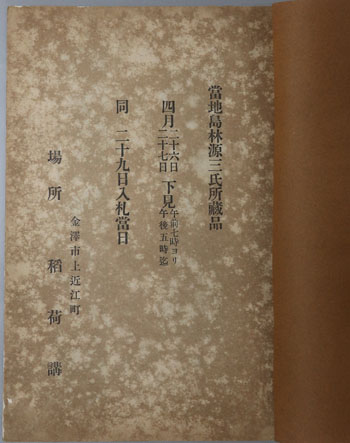 當地島林源三氏所藏品
四月二十六日二十七日下見午前七時ヨリ午後五時迄
同二十九日入札當日
金澤市上近江町
場所稻荷講